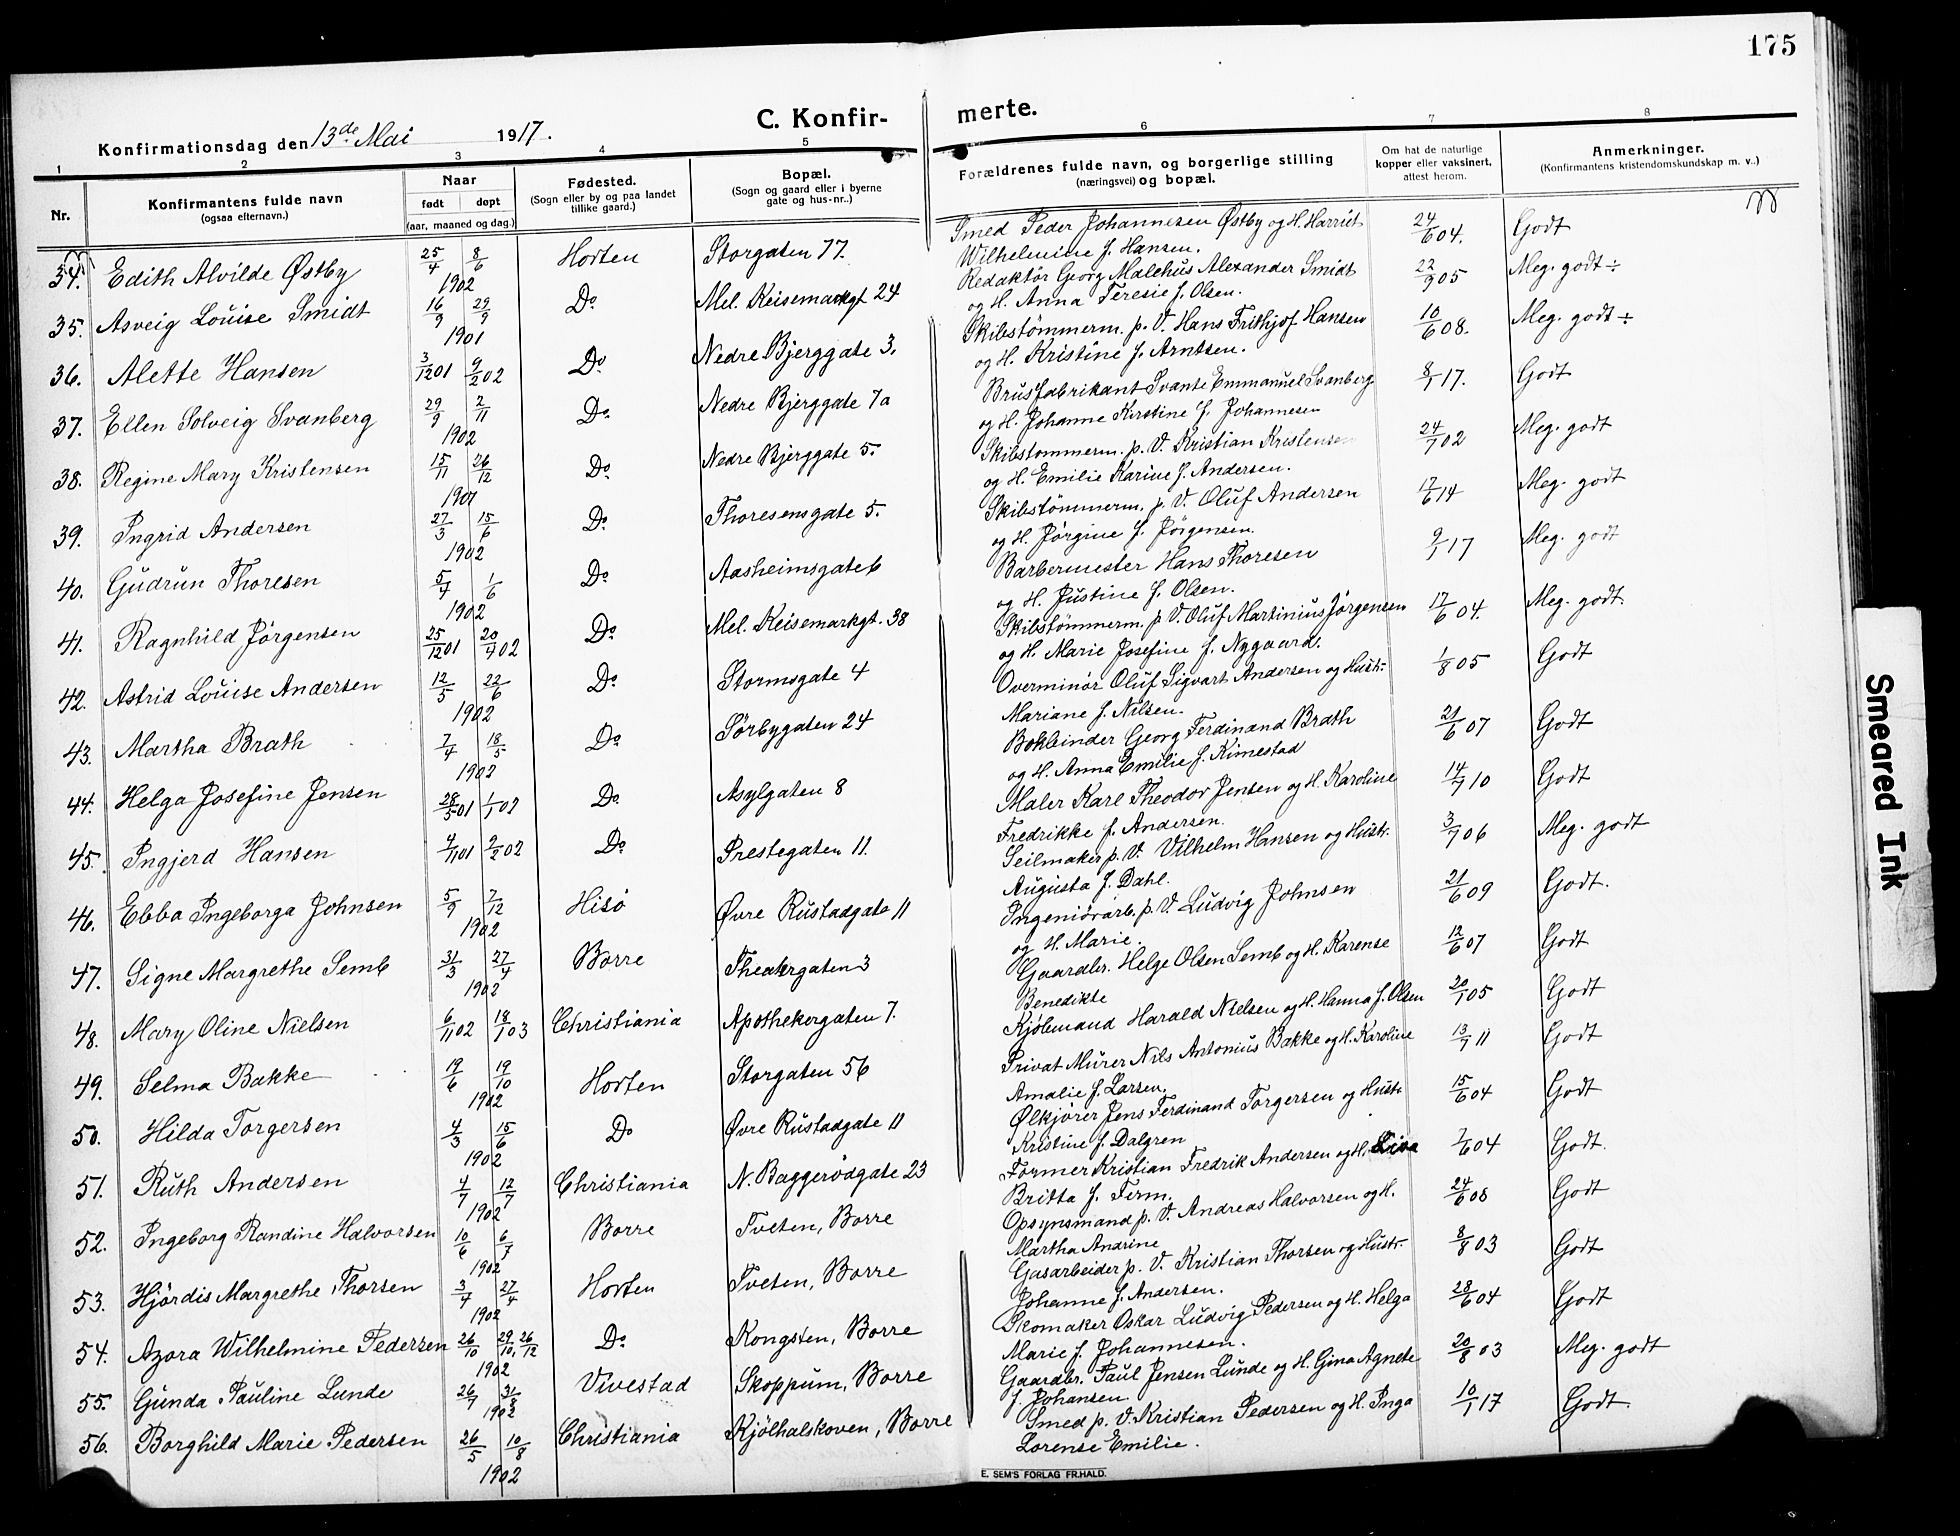 175
C. Konfir- merte.
Konfirmationsdag den 13de Mai 1917.
1 2 3 4 5 6 7 8
Nr. Konfirmantens fulde navn (ogsaa efternavn.) Naar født døpt (aar, maaned og dag.) Fødested. (Sogn eller by og paa landet tillike gaard.) Bopæl. (Sogn og gaard eller i byerne gate og hus-nr.) Forældrenes fulde navn, og borgerlige stilling (næringsvei) og bopæl. Om hat de naturlige kopper eller vaksinert, attest herom. Anmerkninger. (Konfirmantens kristendomskundskap m. v.)
34. Edith Alvilde Østby 25/4 8/6 1902 Horten Storgaten 77. Smed Peder Johannesen Østby og H. Harriet 24/6 04. Godt
Wilhelmine f. Hansen.
35. Asveig Louise Smidt 16/9 29/9 1901 Do Mel. Keisemarkgt 24 Redaktør Georg Malehus Alexander Smidt 22/9 05 Meg. godt ÷
og H. Anna Teresie f. Olsen.
36. Alette Hansen 3/12 01 9/2 02 Do Nedre Bjerggate 3. Skibstömmerm. p. V. Hans Frithjof Hansen 10/6 08. Meg. godt ÷
og H. Kristine f. Arntsen.
37. Ellen Solveig Svanberg 29/9 2/11 1902 Do Nedre Bjerggate 7a Brusfabrikant Svante Emmanuel Svanberg 8/1 17. Godt
og H. Johanne Kirstine f. Johannesen
38. Regine Mary Kristensen 15/11 26/12 1901 Do Nedre Bjerggate 5. Skibstommerm. p. V. Kristian Kristensen 24/7 02 Meg. godt
og H. Emilie Karine f. Andersen.
39. Ingrid Andersen 27/3 15/6 1902 Do Thoresensgate 5. Skibstömmerm. p. V. Oluf Andersen 17/6 14 Meg. godt
og H. Jørgine f. Jørgensen.
40. Gudrun Thoresen 5/4 1/6 1902 Do Aasheimsgate 6 Barbermester Hans Thoresen 9/1 17 Meg. godt
og H. Justine f. Olsen.
41. Ragnhild Jørgensen 25/12 01 20/4 02 Do Mel. Keisemarkgt. 38 Skibstömmerm. p V. Oluf Martinius Jørgensen 17/6 04. Meg. godt.
og H. Marie Josefine f. Nygaard.
42. Astrid Louise Andersen 12/5 22/6 1902 Do Stormsgate 4 Overminör Oluf Sigvart Andersen og Hustr. 1/8 05 Godt
Mariane f. Nilsen.
43. Martha Brath 7/4 18/5 1902 Do Sørbygaten 24 Bokbinder Georg Ferdinand Brath 21/6 07 Godt
og H. Anna Emilie f. Kimestad
44. Helga Josefine Jensen 28/5 01 1/1 02 Do Asylgaten 8 Maler Karl Theodor Jensen og H. Karoline 14/7 10 Godt
Fredrikke f. Andersen.
45. Ingjerd Hansen 4/11 01 9/2 02 Do Prestegaten 11. Seilmaker p. V. Vilhelm Hansen og Hustr. 3/7 06 Meg. godt
Augusta f. Dahl.
46. Ebba Ingeborga Johnsen 5/9 7/12 1902 Hisö Øvre Rustadgate 11 Ingeniörarb. p. V. Ludvig Johnsen 21/6 09 Godt.
og H. Marie.
47. Signe Margrethe Semb 31/3 27/4 1902 Borre Theatergaten 3 Gaardbr. Helge Olsen Semb og H. Karense 12/6 07 Godt
Benedikte
48. Mary Oline Nielsen 6/11 02 18/1 03 Christiania Apothekergaten 7. Kjölmand Harald Nielsen og H. Hanna f. Olsen 20/1 05 Godt
49. Selma Bakke 19/6 19/10 1902 Horten Storgaten 56 Privat Murer Nils Antonius Bakke og H. Karoline 13/7 11 Godt
Amalie f. Larsen.
50. Hilda Torgersen 4/3 15/6 1902 Do Øvre Rustadgate 11 Ølkjörer Jens Ferdinand Torgersen og Hustr 15/6 04 Godt
Kristine f. Dalgren
51. Ruth Andersen 4/7 12/7 1902 Christiania N. Baggerödgate 23 Former Kristian Fredrik Andersen og H. Lisa 7/6 04 Godt.
Britta f. Ferm.
52. Ingeborg Randine Halvorsen 10/6 6/7 1902 Borre Tveten, Borre Opsynsmand p. V. Andreas Halvorsen og H. 24/6 08 Godt
Martha Andrine
53. Hjördis Margrethe Thorsen 3/4 27/4 1902 Horten Tveten, Borre Gasarbeider p. V. Kristian Thorsen og Hustr. 8/8 03 Godt
Johanne f. Andersen.
54. Azora Wilhelmine Pedersen 26/10 29/10, 26/12 1902 Do Kongsten, Borre Skomaker Oskar Ludvig Pedersen og H. Helga 28/6 04 Godt
Marie f. Johannesen.
55. Gunda Pauline Lunde 26/7 31/8 1902 Vivestad Skoppum, Borre Gaardbr. Paul Jensen Lunde og H. Gina Agnete 20/8 03 Meg. godt
f. Johansen.
56. Borghild Marie Pedersen 26/5 10/8 1902 Christiania Kjölhalskoven, Borre Smed p. V. Kristian Pedersen og H. Inga 10/1 17 Godt.
Lorense Emilie.
E. SEM'S FORLAG FR.HALD.
Smeared Ink